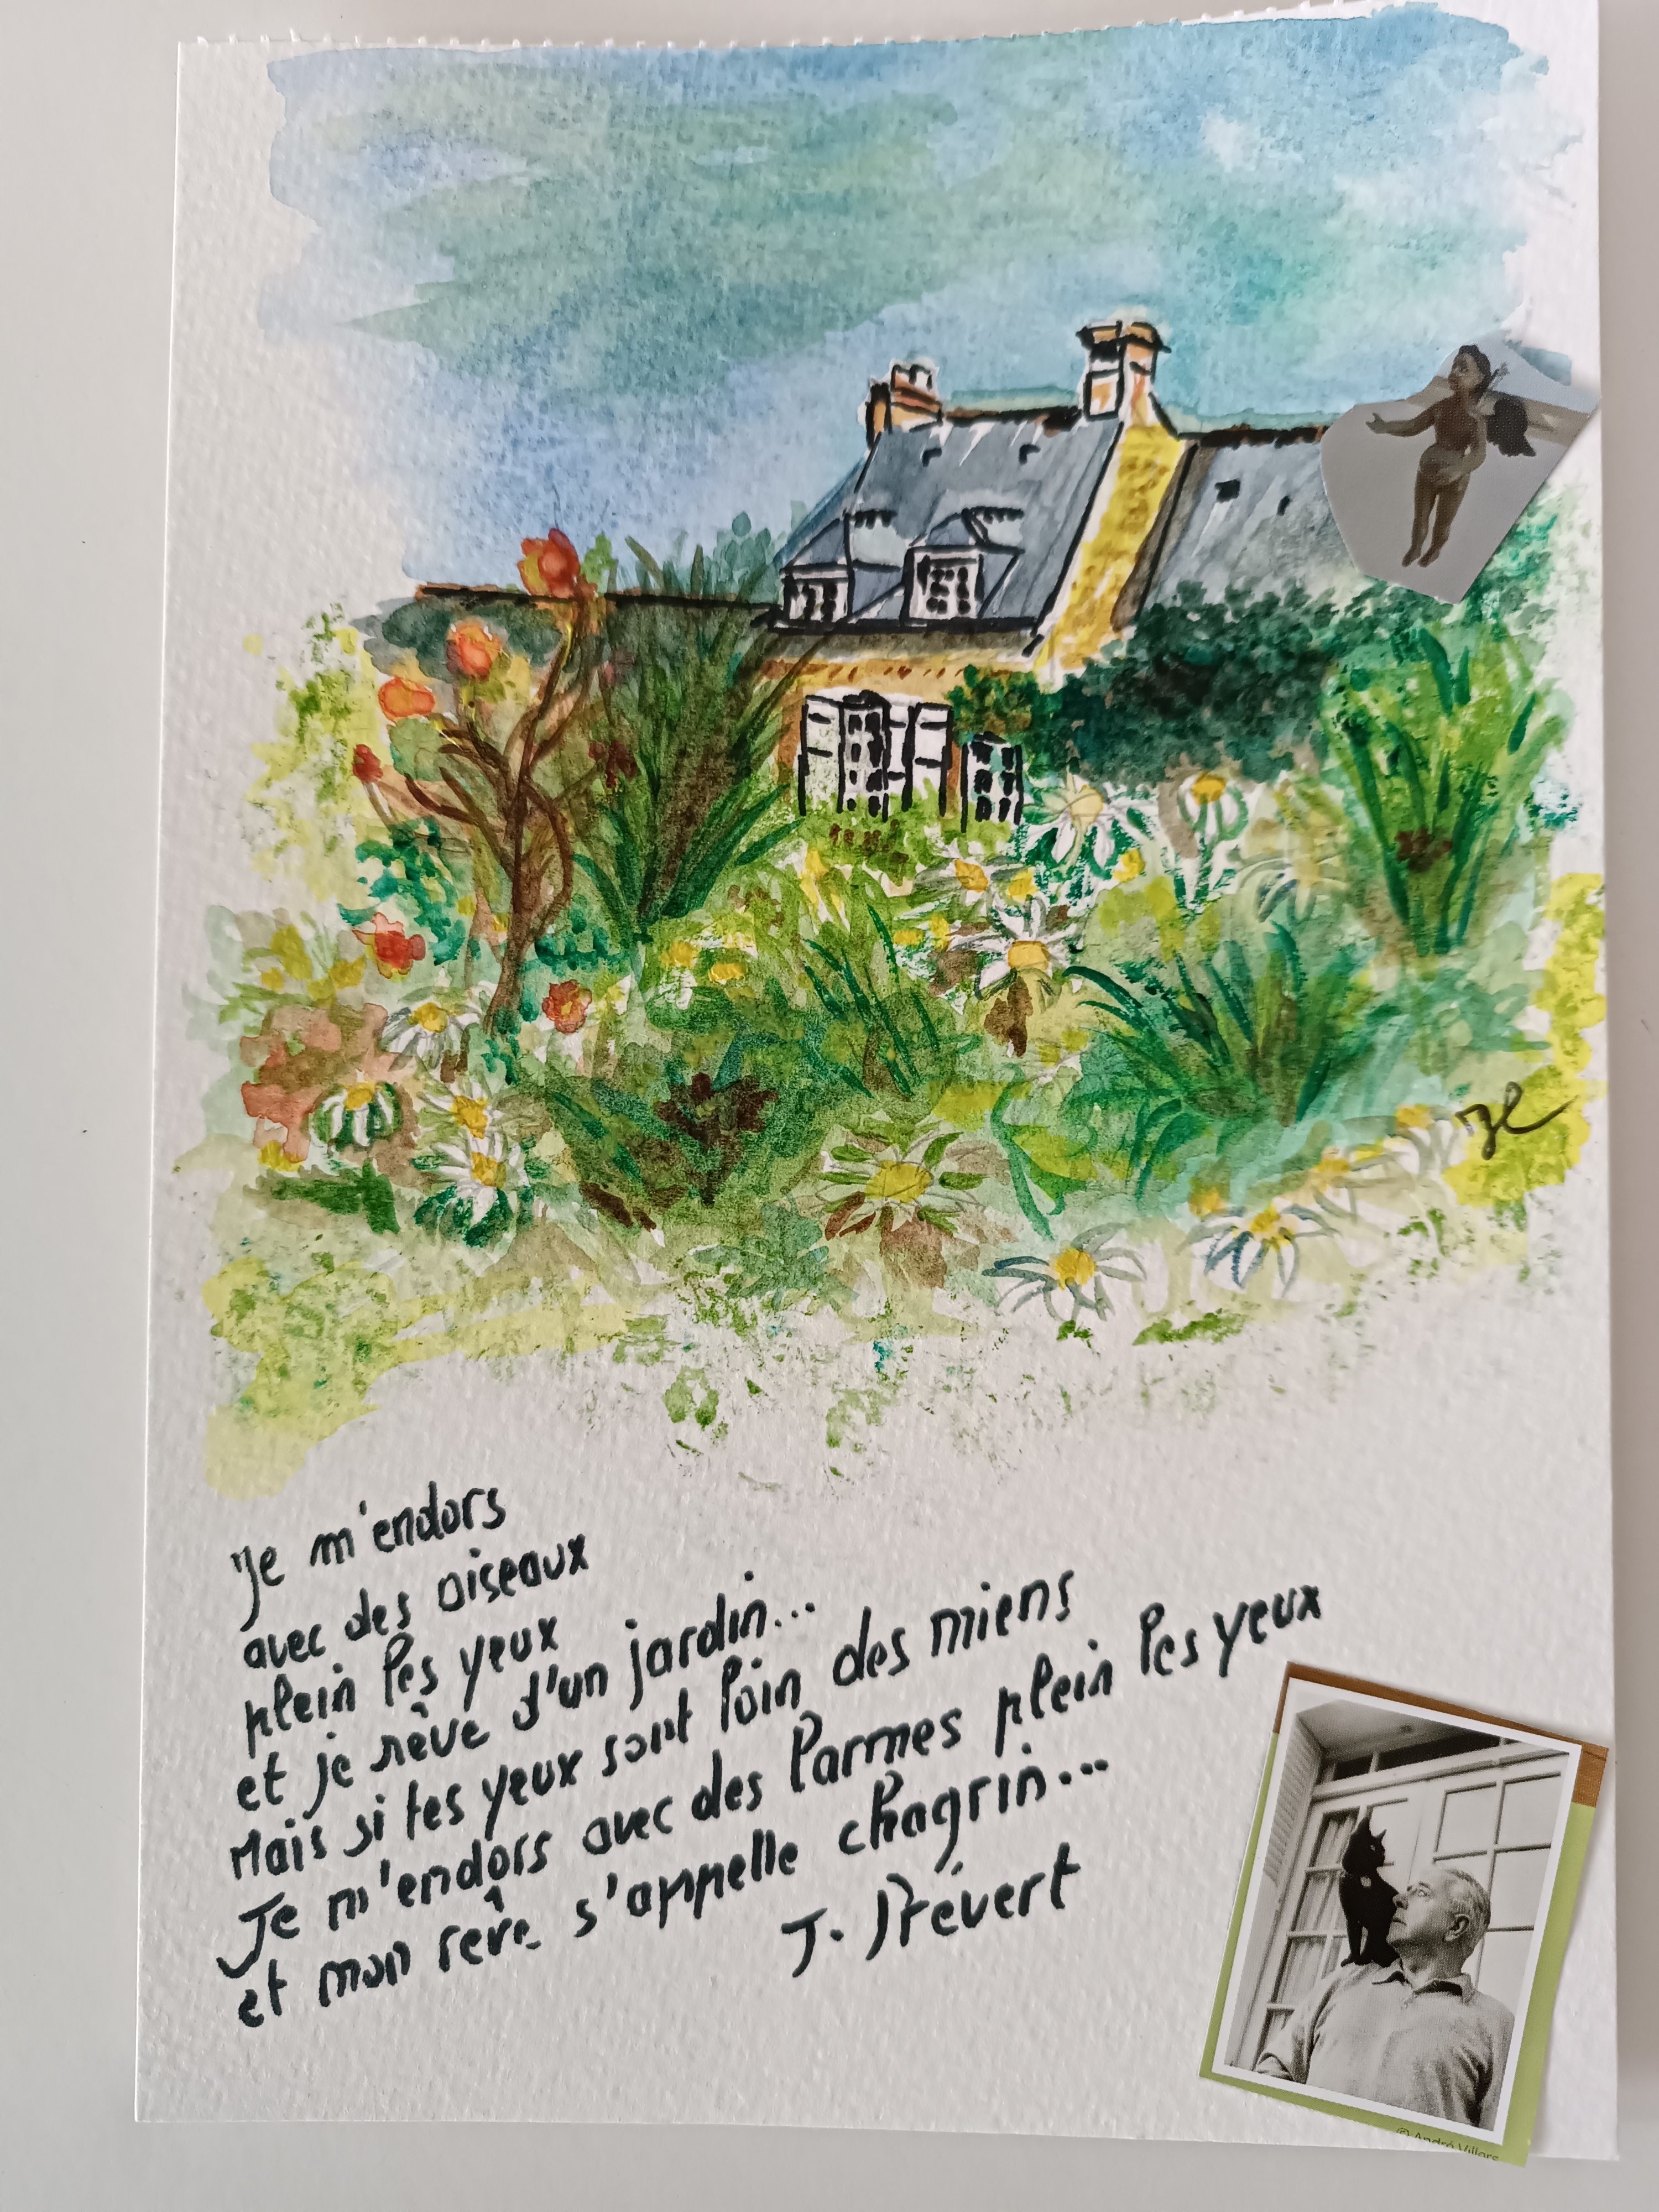 JL
Je m'endors
avec des oiseaux
plein les yeux
et je rêve d'un jardin...
Mais si tes yeux sont loin des miens
Je m'endors avec des larmes plein les yeux
et mon rêve s'appelle chagrin...
J. Prévert
© André Villers